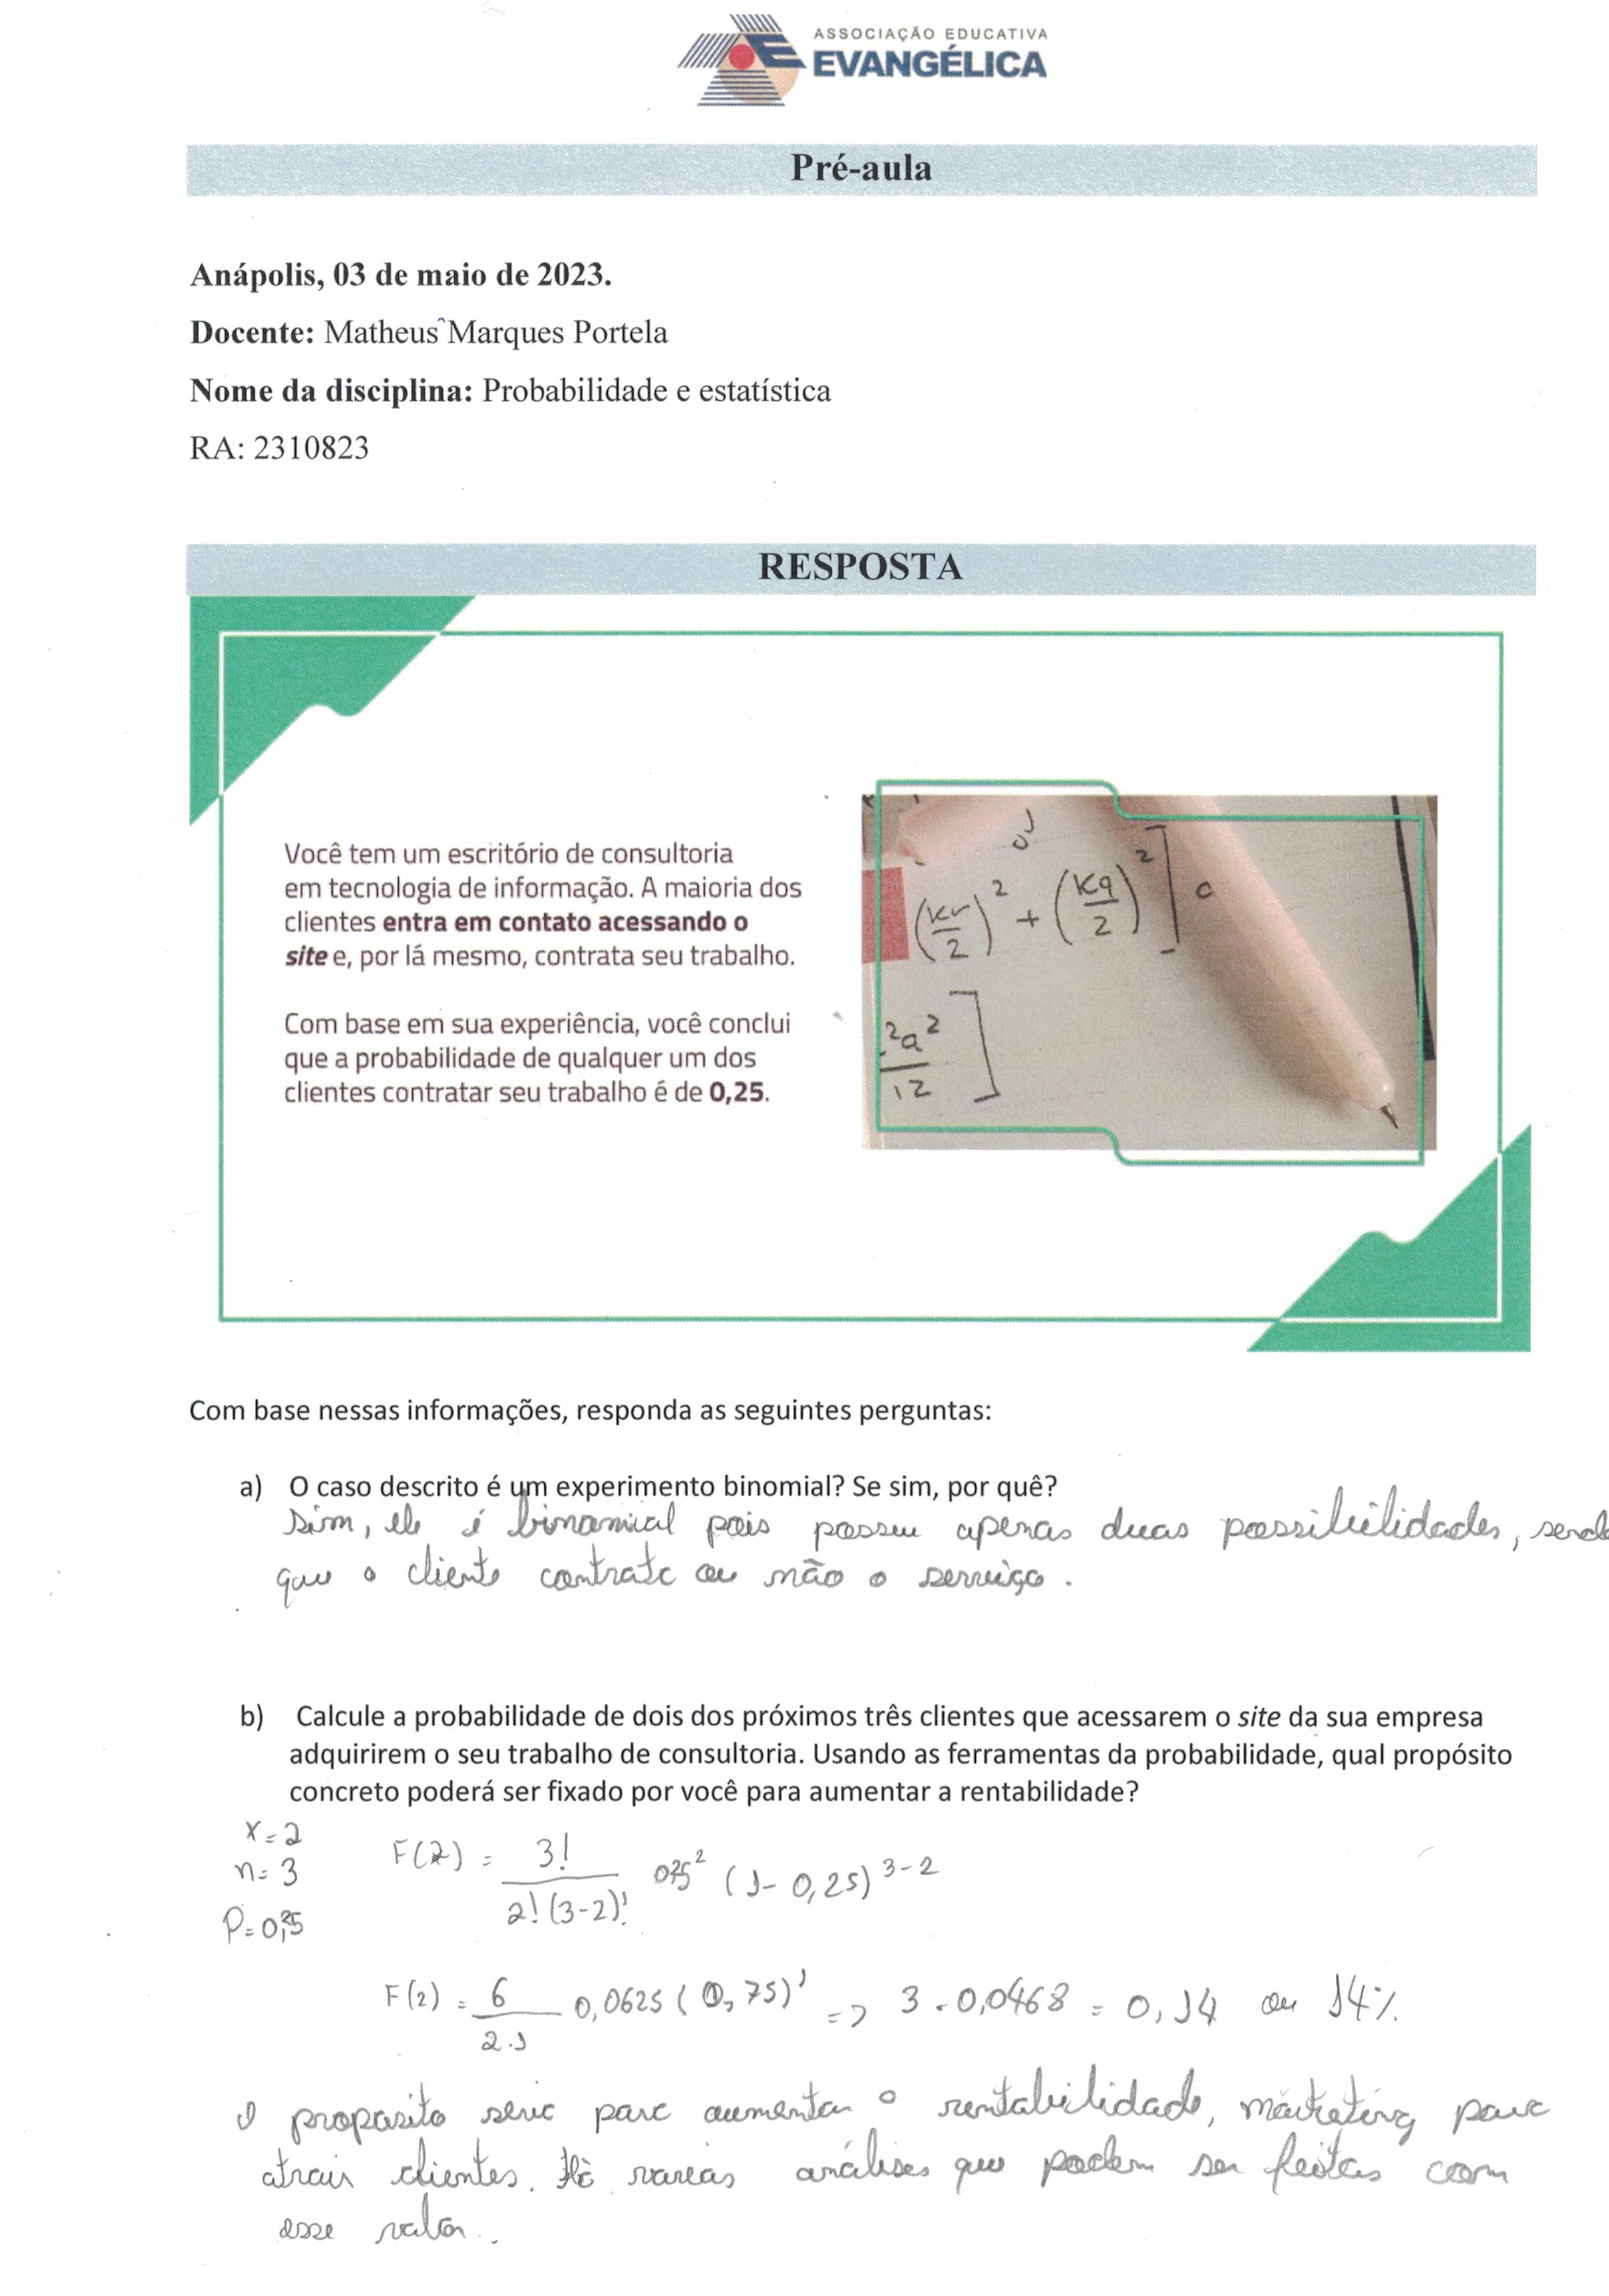 ASSOCIAÇÃO EDUCATIVA
EVANGÉLICA
Pré-aula
Anápolis, 03 de maio de 2023.
Docente: Matheus Marques Portela
Nome da disciplina: Probabilidade e estatística
RA: 2310823
RESPOSTA
Você tem um escritório de consultoria
em tecnologia de informação. A maioria dos
clientes entra em contato acessando o
site e, por lá mesmo, contrata seu trabalho.
Com base em sua experiência, você conclui
que a probabilidade de qualquer um dos
clientes contratar seu trabalho é de 0,25.
(kr/2)² + (kq/2)²]
²a²/12]
Com base nessas informações, responda as seguintes perguntas:
a) O caso descrito é um experimento binomial? Se sim, por quê?
Sim, ele é binomial pois possui apenas duas possibilidades, sendo
que o cliente contrate ou não o serviço.
b) Calcule a probabilidade de dois dos próximos três clientes que acessarem o site da sua empresa
adquirirem o seu trabalho de consultoria. Usando as ferramentas da probabilidade, qual propósito
concreto poderá ser fixado por você para aumentar a rentabilidade?
X = 2
n = 3
P = 0,25
F(2) = 3!/2!(3-2)! 0,25² (1-0,25)³⁻²
F(2) = 6/2.1 0,0625 (0,75)¹ => 3 . 0,0468 = 0,14 ou 14%
O proposito seria para aumentar a rentabilidade, marketing para
atrair clientes. Há varias análises que podem ser feitas com
esse valor.